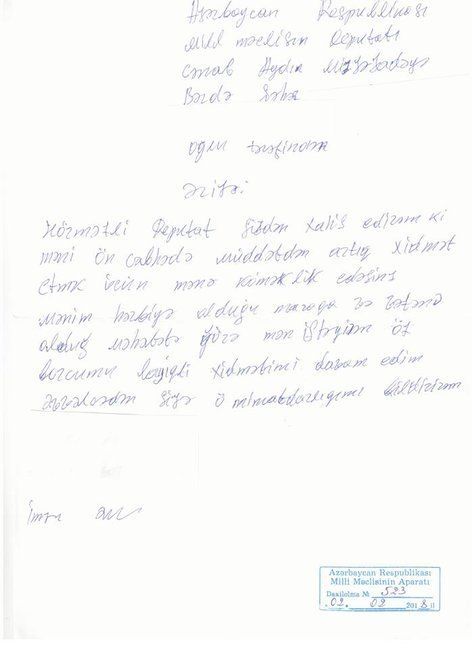 Azərbaycan Respublikası
Milli məclisin Deputatı
Cənab Aydın Mirzəzadəyə
Bərdə Şəhər
oğlu tərəfindən
Ərizə.
Hörmətli Deputat Sizdən xaiş edirəm ki
məni Ön cəbhədə müddətdən artıq xidmət
etmək üçün mənə köməklik edəsiniz
Mənim hərbiyə olduğu marağa və vətənə
olduğ məhəbətə görə mən istəyirəm öz
borcumu layiqli xidmətimi davam edim
Əvvəlcədən Sizə minnətdarlığımı bildirirəm
İmza
Azərbaycan Respublikası
Milli Məclisinin Aparatı
Daxilolma № 523
.02. 02 2018 il